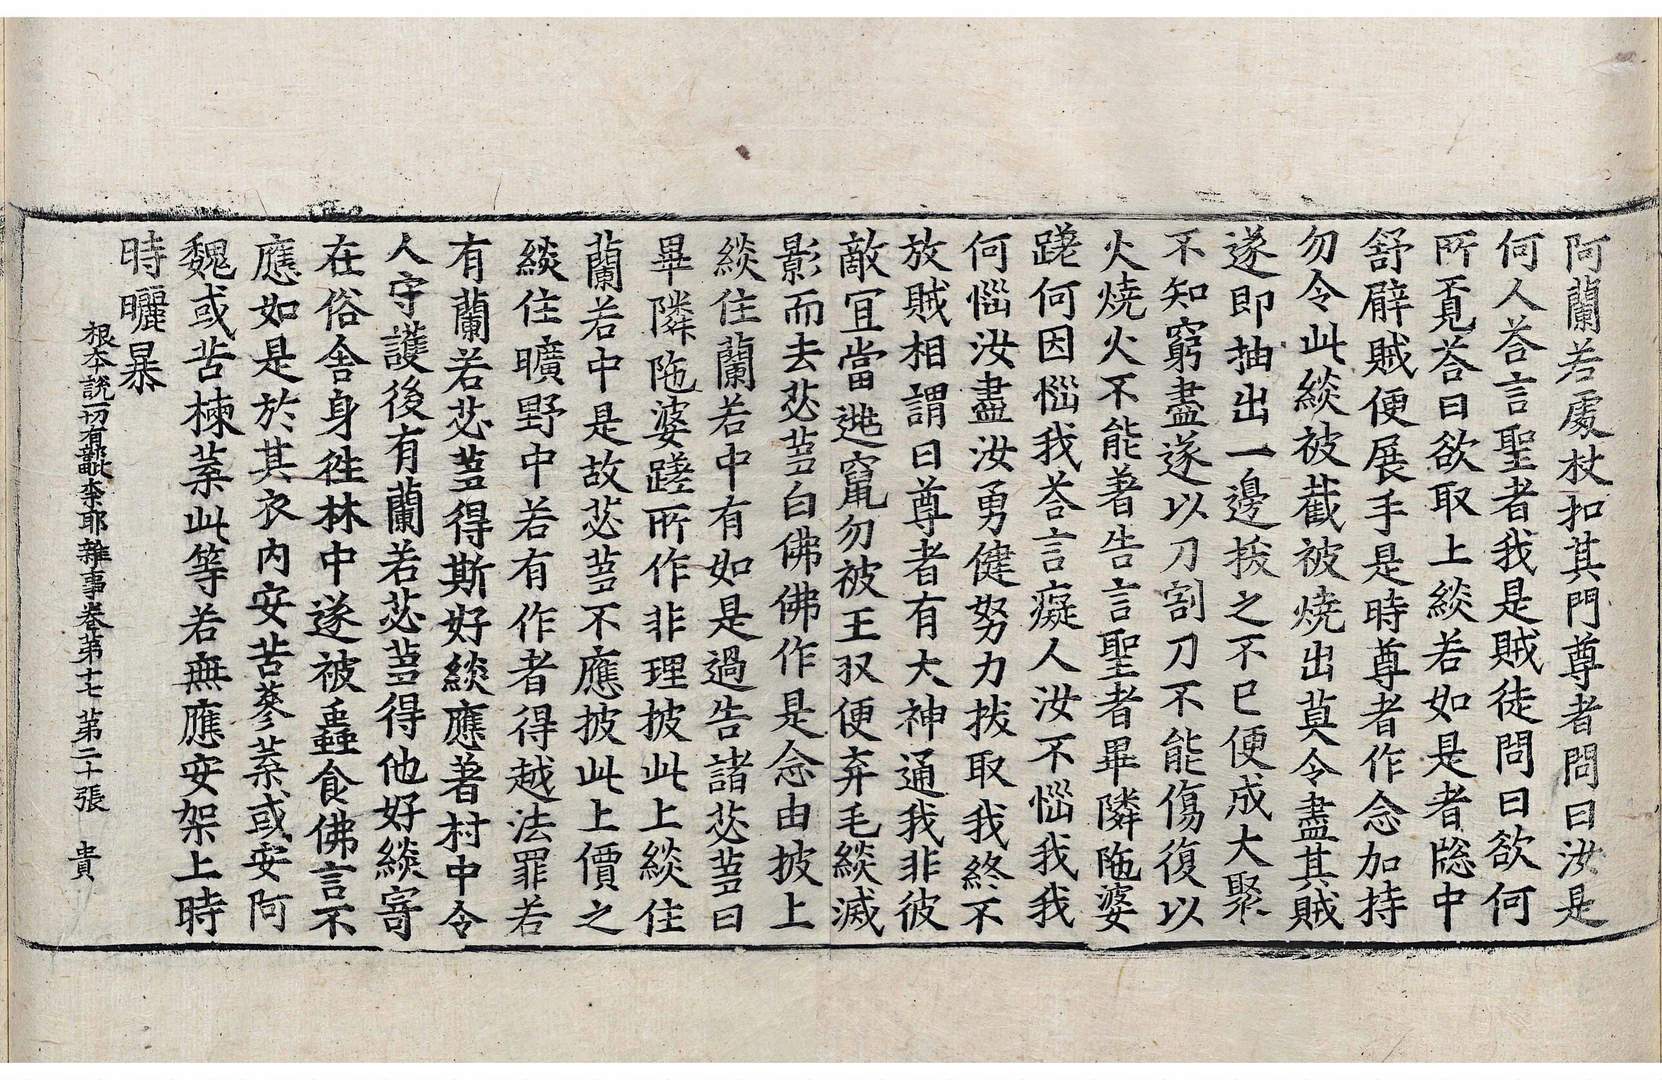 阿蘭若處杖扣其門尊者問曰汝是
何人荅言聖者我是賊徒問曰欲何
所覓荅曰欲取上緂若如是者牕中
舒臂賊便展手是時尊者作念加持
勿令此緂被截被燒出莫令盡其賊
遂即抽出一邊拔之不已便成大聚
不知窮盡遂以刀割刀不能傷復以
火燒火不能著告言聖者畢隣陁婆
蹉何因惱我荅言癡人汝不惱我我
何惱汝盡汝勇健努力拔取我終不
放賊相謂曰尊者有大神通我非彼
敵宜當逃竄勿被王収便弃毛緂滅
影而去苾芻白佛佛作是念由披上
緂住蘭若中有如是過告諸苾芻曰
畢隣陁婆蹉所作非理披此上緂住
蘭若中是故苾芻不應披此上價之
緂住曠野中若有作者得越法罪若
有蘭若苾芻得斯好緂應著村中令
人守護後有蘭若苾芻得他好緂寄
在俗舍身往林中遂被蟲食佛言不
應如是於其衣內安苦蔘葉或安阿
魏或苦楝葉此等若無應安架上時
時曬暴
根本說一切有部毗柰耶雜事卷第十七 第二十張 貴